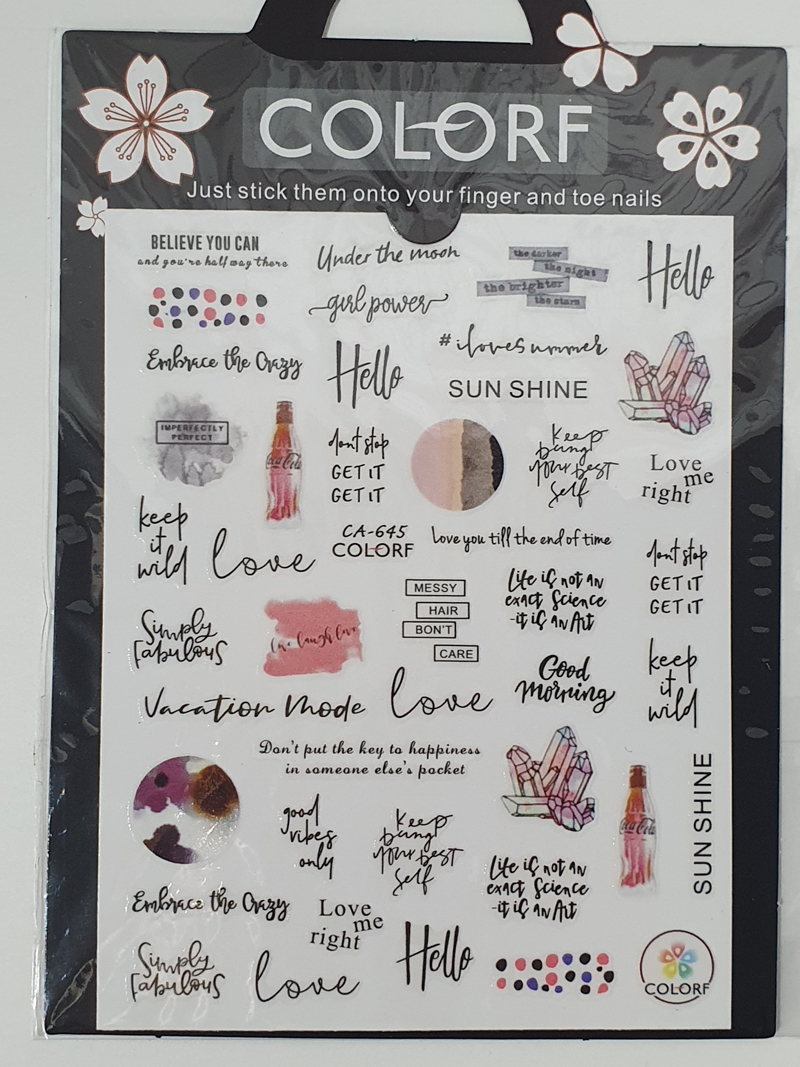 COLORF
Just stick them onto your finger and toe nails
BELIEVE YOU CAN
and you're half way there
Under the moon
the darker
the night
the brighter
the stars
Hello
girl power
#ilovesummer
Embrace the Crazy
Hello
SUN SHINE
IMPERFECTLY
PERFECT
Coca-Cola
don't stop
GET IT
GET IT
keep
being
your best
self
Love
me
right
keep
it
wild
love
CA-645
COLORF
Love you till the end of time
don't stop
GET IT
GET IT
Simply
fabulous
live laugh love
MESSY
HAIR
BON'T
CARE
Life is not an
exact Science
-it is an Art
Good
Morning
keep
it
wild
Vacation Mode
love
Don't put the key to happiness
in someone else's pocket
good
vibes
only
keep
being
your best
self
Coca-Cola
SUN SHINE
Life is not an
exact Science
-it is an Art
Embrace the Crazy
Love
me
right
Hello
Simply
fabulous
love
COLORF